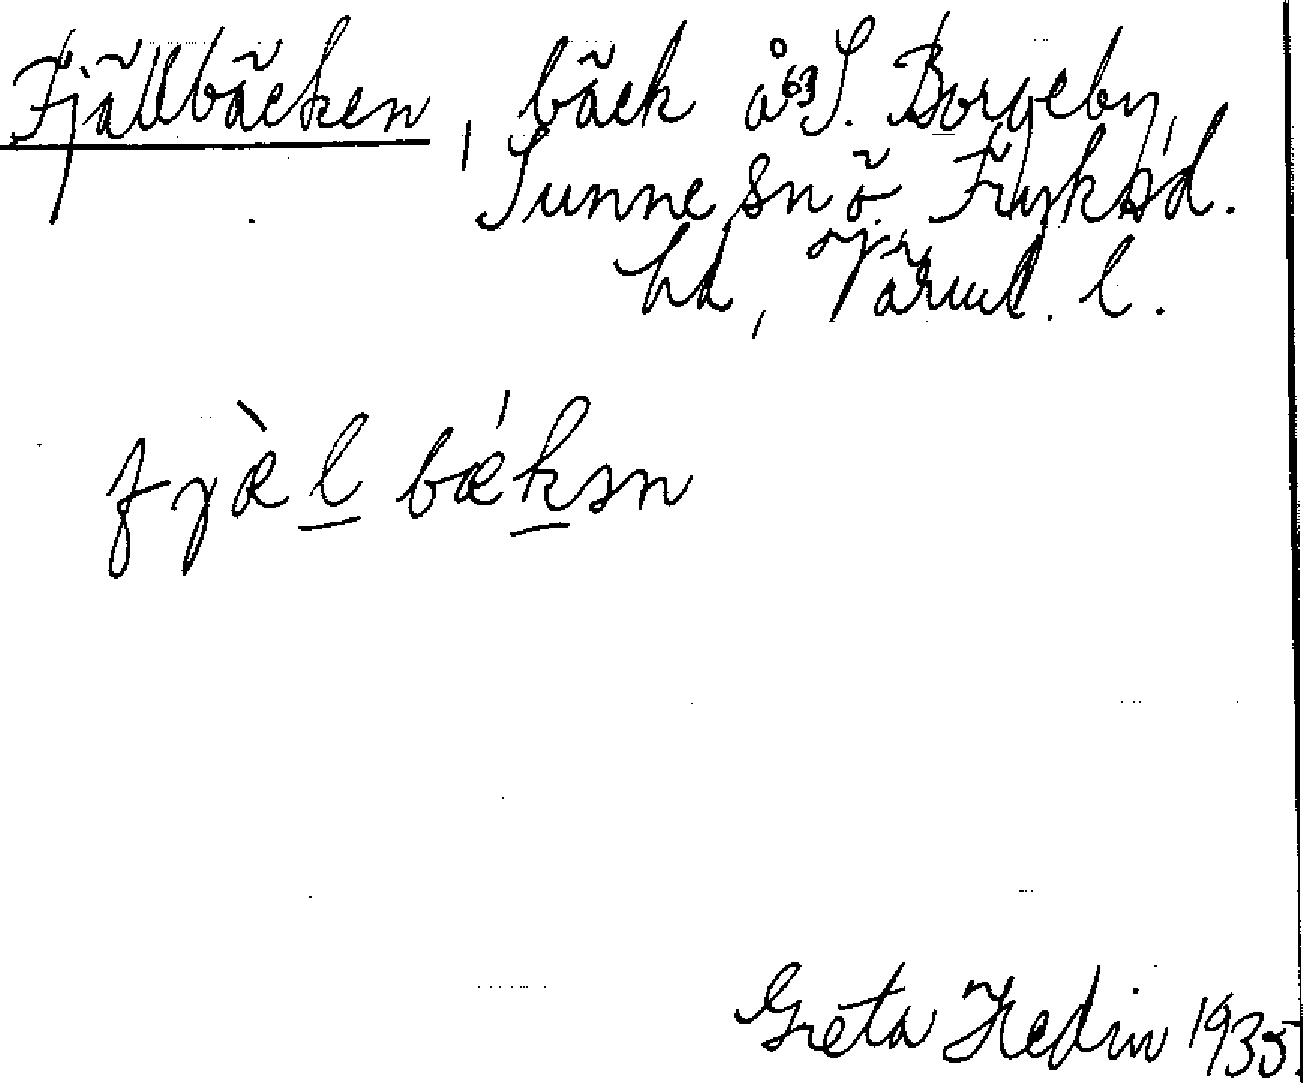 Fjällbäcken, bäck å 63 S. Borgeby,
Sunne sn Ö. Fryksd.
hd, Värml. l.
fjæ̀l bǽkən
Greta Hedin 1935.